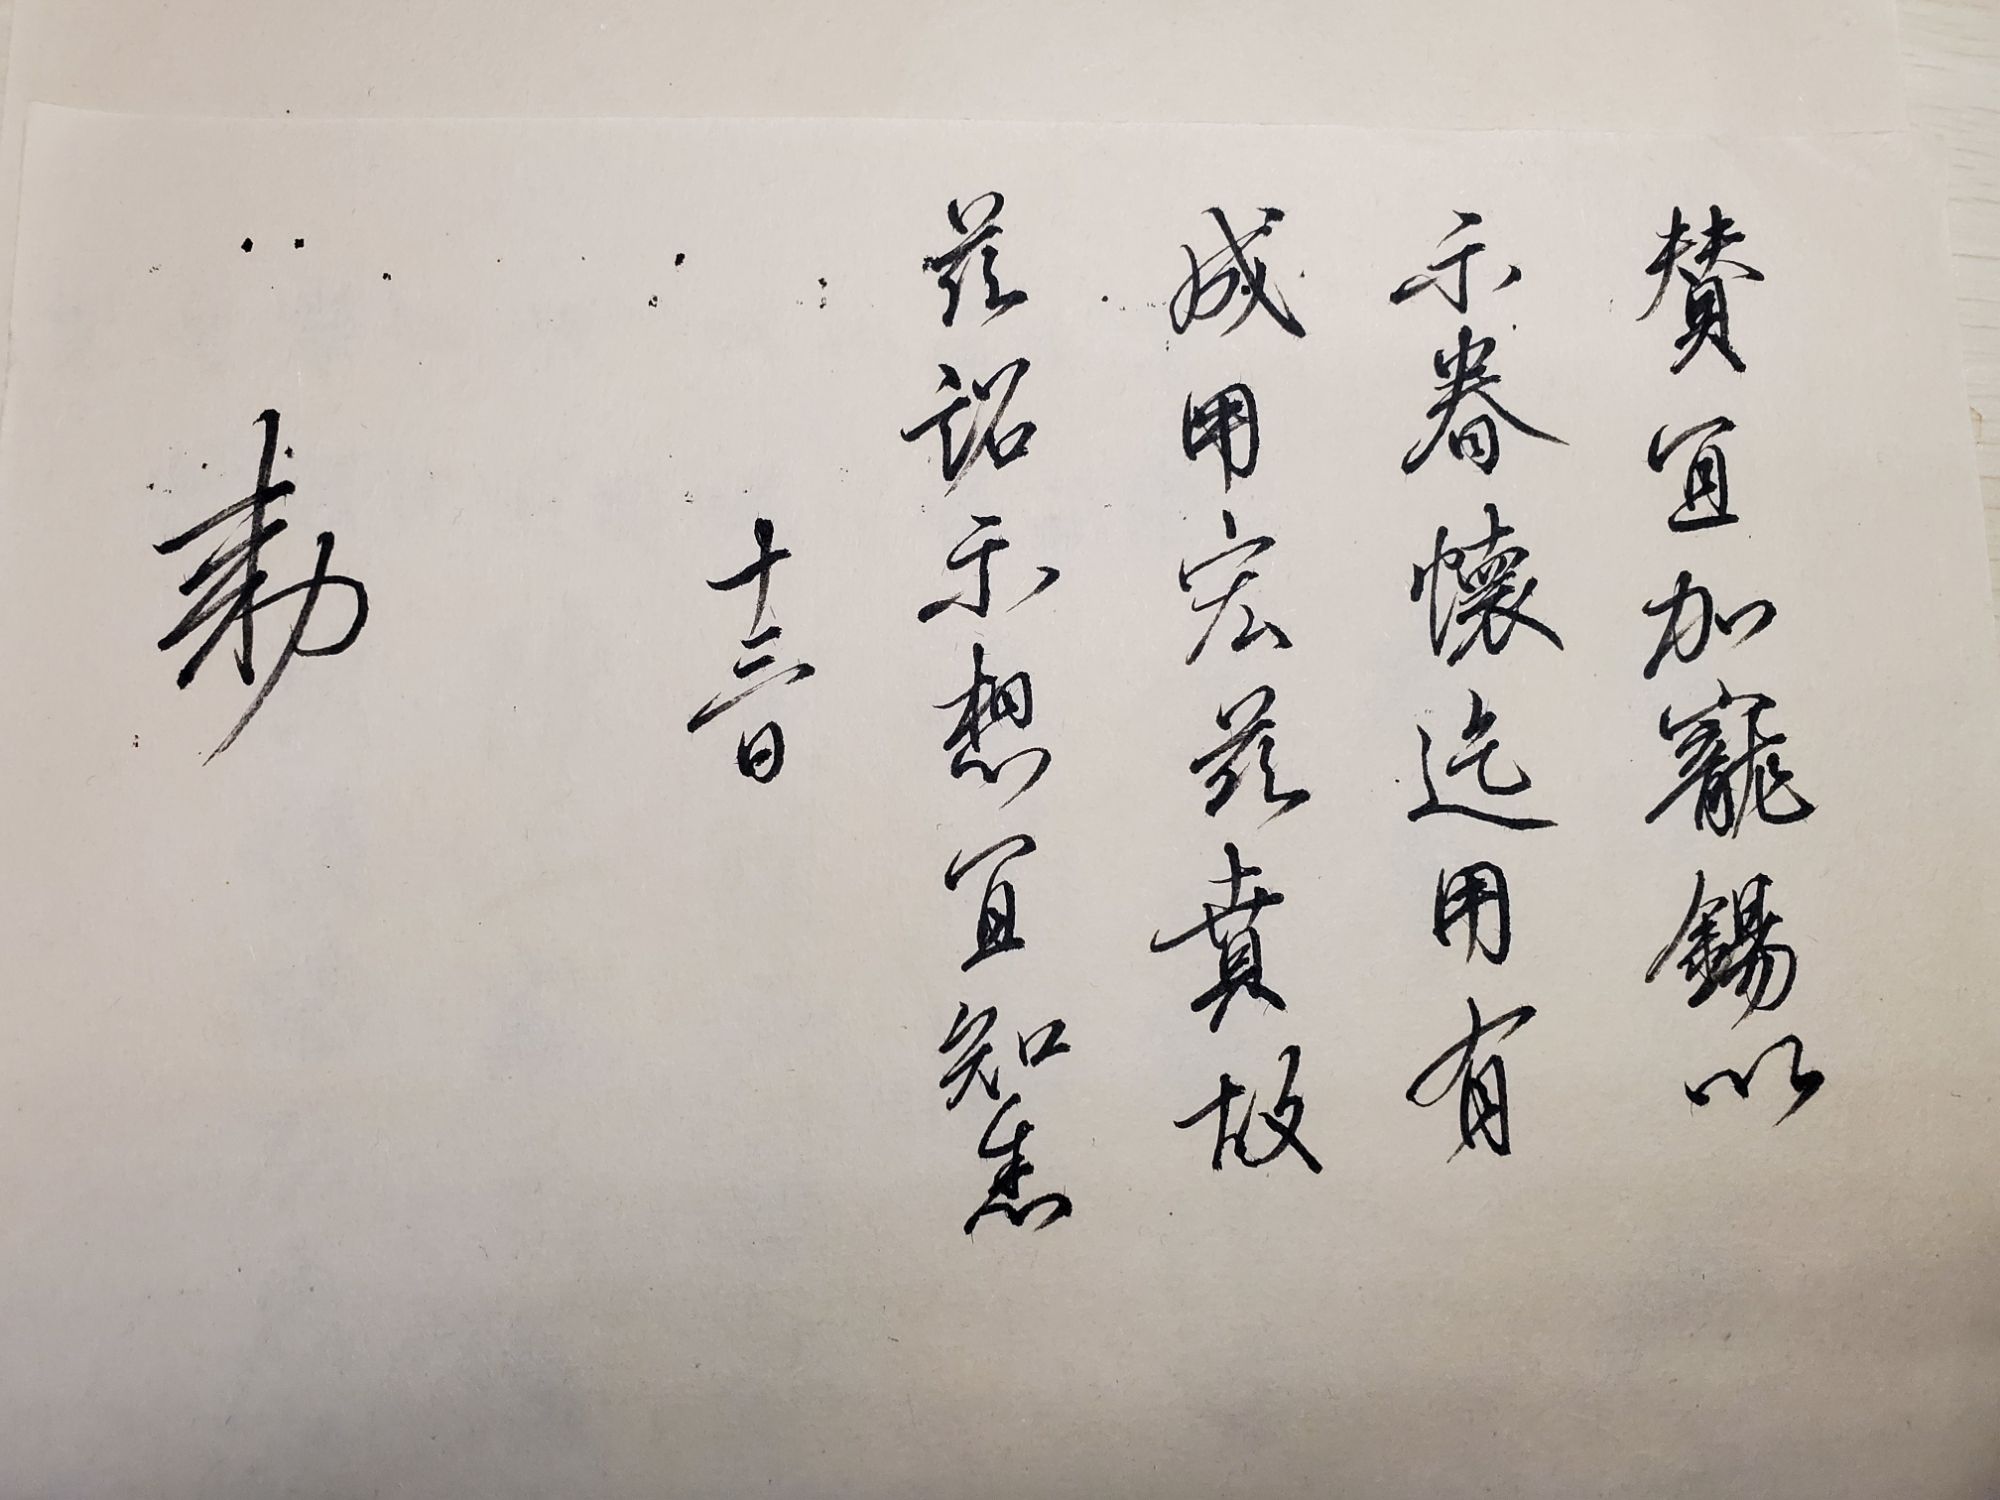 賛宜加寵錫以
示眷懷迄用有
成用宏茲賁故
茲詔示想宜知悉
十三日
勅